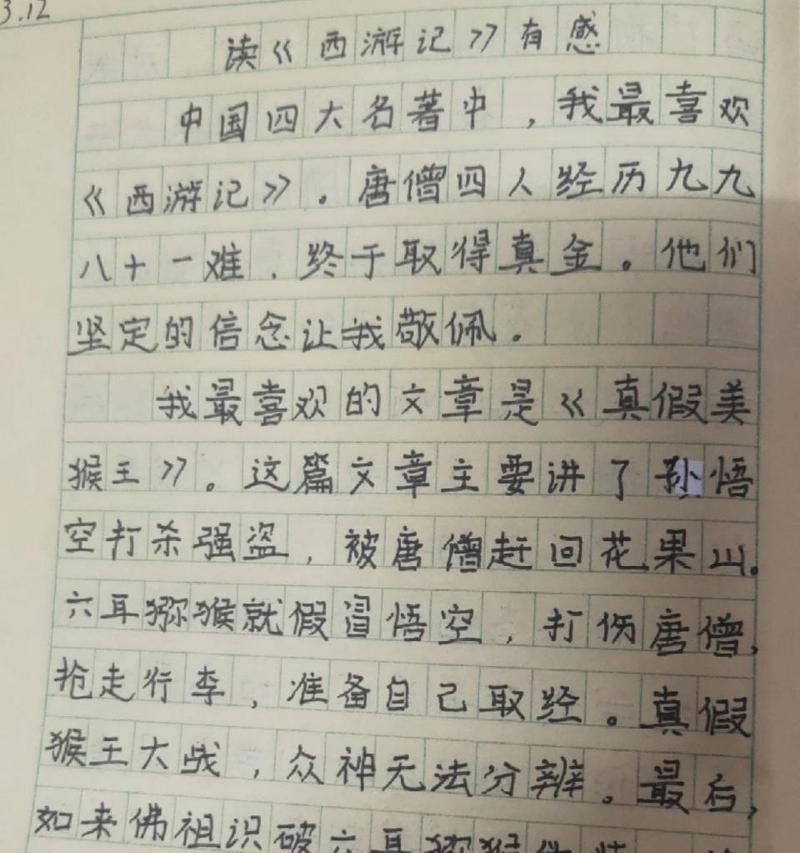 3.12
读《西游记》有感
中国四大名著中，我最喜欢
《西游记》。唐僧四人经历九九
八十一难，终于取得真金。他们
坚定的信念让我敬佩。
我最喜欢的文章是《真假美
猴王》。这篇文章主要讲了孙悟
空打杀强盗，被唐僧赶回花果山。
六耳猕猴就假冒悟空，打伤唐僧，
抢走行李，准备自己取经。真假
猴王大战，众神无法分辨。最后，
如来佛祖识破六耳猕猴